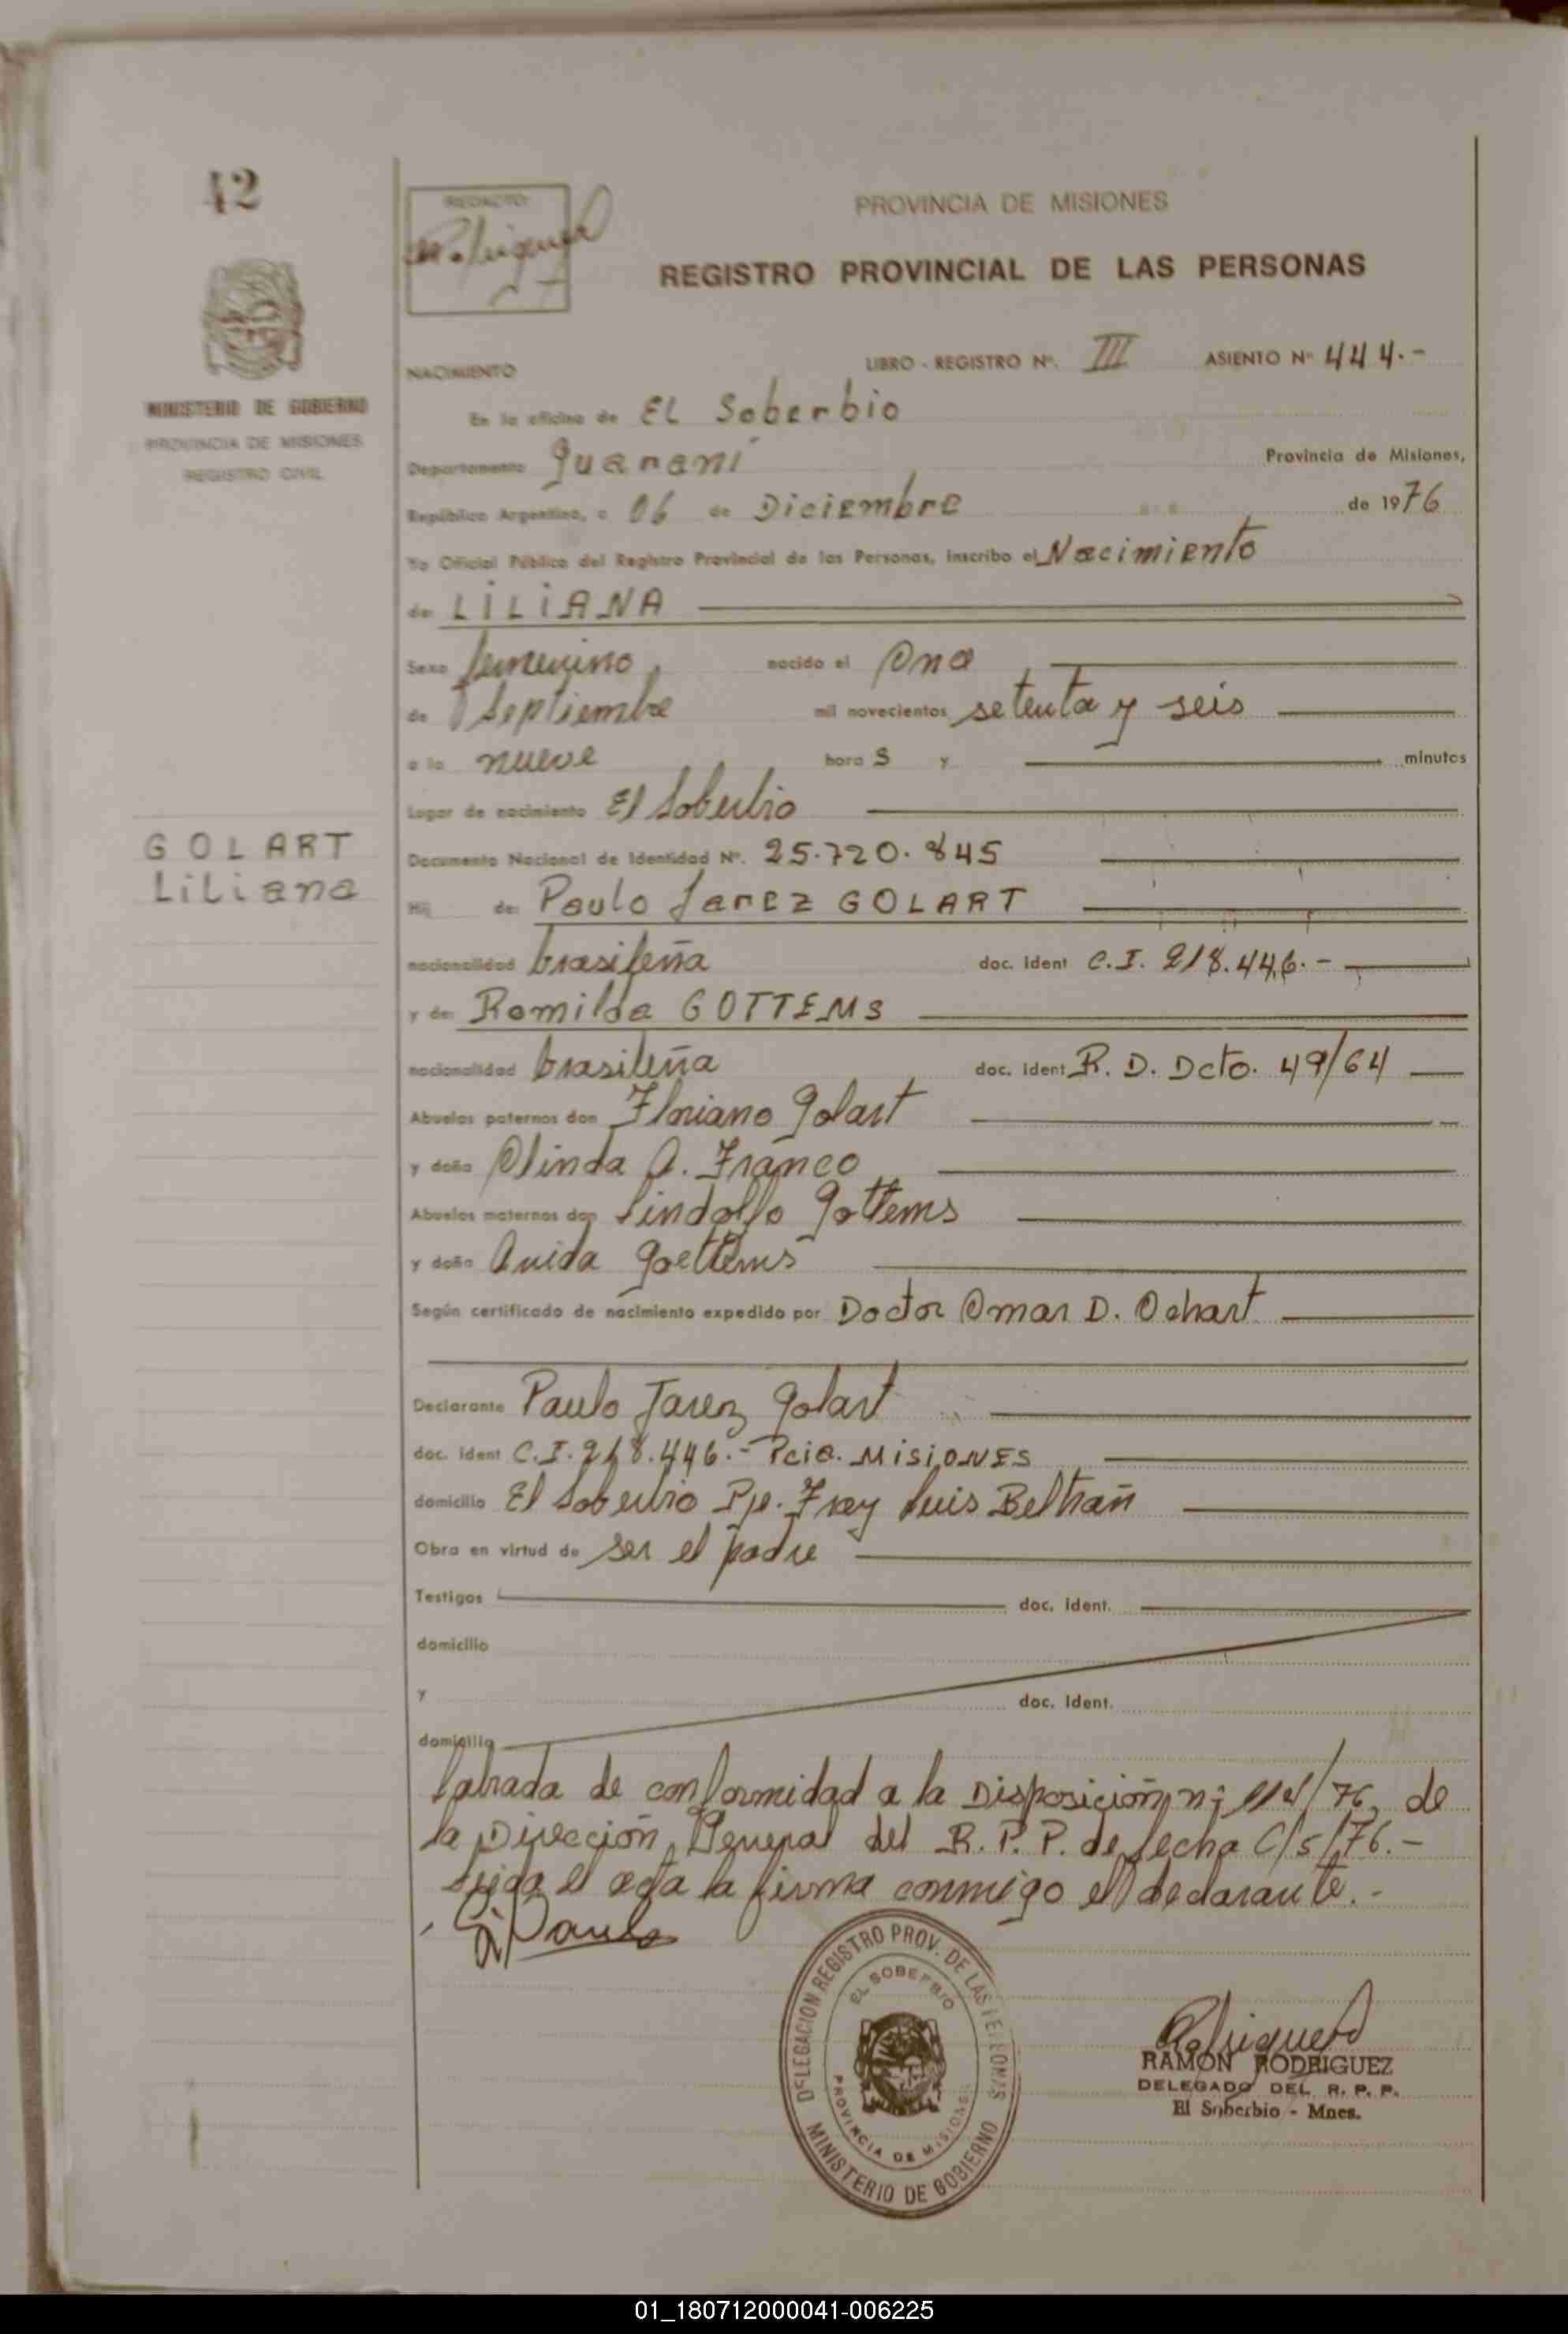 42
REDACTO:
PROVINCIA DE MISIONES
REGISTRO PROVINCIAL DE LAS PERSONAS
MINISTERIO DE GOBIERNO
PROVINCIA DE MISIONES
REGISTRO CIVIL
NACIMIENTO
LIBRO - REGISTRO Nº. III ASIENTO Nº 444.-
En la oficina de EL Soberbio
Departamento Guaraní Provincia de Misiones,
República Argentina, a 06 de Diciembre de 1976
Yo Oficial Público del Registro Provincial de las Personas, inscribo el Nacimiento
de LILIANA
Sexo femenino, nacido el Once
de Septiembre mil novecientos setenta y seis
a la nueve hora s y minutos
Lugar de nacimiento El Soberbio
GOLART
Liliana
Documento Nacional de Identidad Nº. 25.720.845
Hij de: Paulo Jarez GOLART
nacionalidad brasileña doc. ident C.I. 218.446.-
y de: Romilda GOTTEMS
nacionalidad brasileña doc. ident R. D. Dcto. 49/64
Abuelos paternos don Floriano Golart
y doña Olinda A. Franco
Abuelos maternos don Lindolfo Gottems
y doña Goettems
Según certificado de nacimiento expedido por Doctor Omar D. Ochart
Declarante Paulo Jarez Golart
doc. ident C.I. 218.446.- Pcia. MISIONES
domicilio El Soberbio Pje. Fray Luis Beltrañ
Obra en virtud de ser el padre
Testigos doc. ident.
domicilio
y doc. ident.
domicilio
labrada de conformidad a la Disposición nº /76, de
la Dirección General del R. P. P. de fecha /5/76.-
el acta la firma conmigo el declarante.-
Paulo
DELEGACION REGISTRO PROV. DE LAS PERSONAS
EL SOBERBIO
PROVINCIA DE MISIONES
MINISTERIO DE GOBIERNO
RAMON RODRIGUEZ
DELEGADO DEL R. P. P.
El Soberbio - Mnes.
01_180712000041-006225